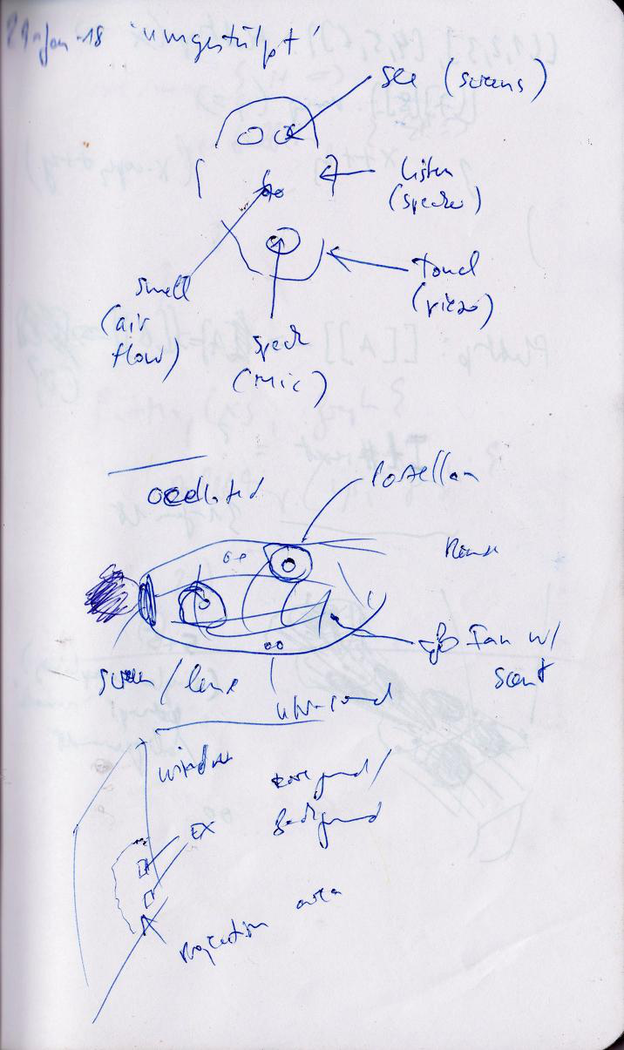 29-Jan-18 'umgestülpt'
see (screens)
listen
(speaker)
smell
(air
flow)
touch
(piezo)
speak
(mic)
Fan w/
scent
screen / lens
ultrasound
window
foreground/
background
EX
projection area